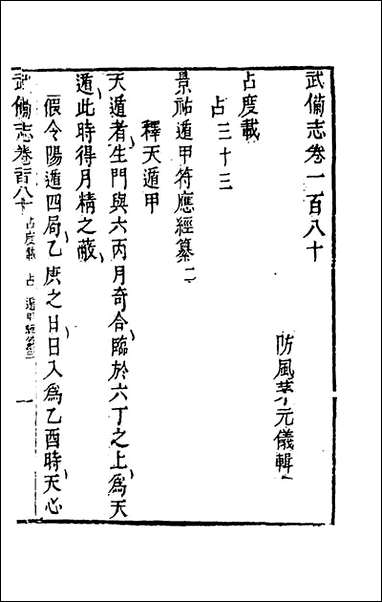 武備志卷一百八十
防風茅元儀輯
占度載
占三十三
景祐遁甲符應經纂二
釋天遁甲
天遁者生門與六丙月奇合臨於六丁之上爲天
遁此時得月精之蔽
假令陽遁四局乙庚之日日入爲乙酉時天心
武備志卷一百八十 占度載 占 遁甲 一